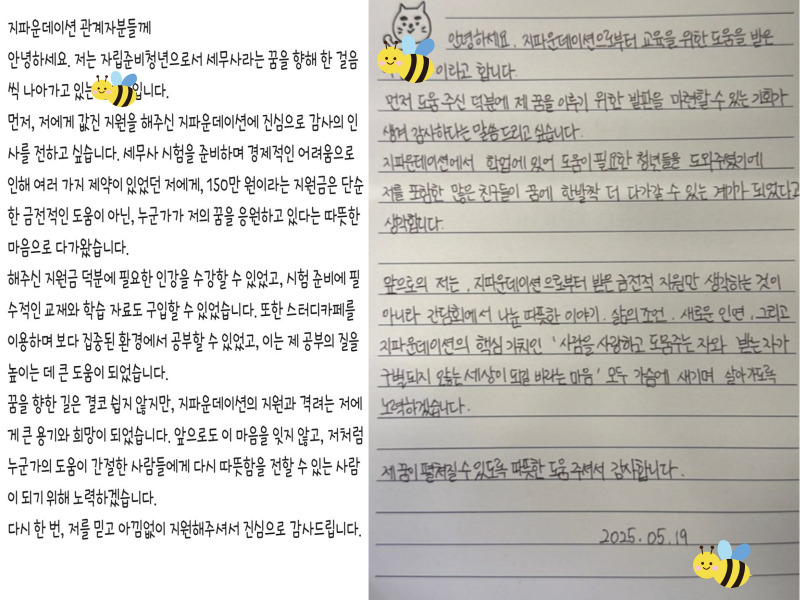 지파운데이션 관계자분들께
안녕하세요. 저는 자립준비청년으로서 세무사라는 꿈을 향해 한 걸음
씩 나아가고 있는 입니다.
먼저, 저에게 값진 지원을 해주신 지파운데이션에 진심으로 감사의 인
사를 전하고 싶습니다. 세무사 시험을 준비하며 경제적인 어려움으로
인해 여러 가지 제약이 있었던 저에게, 150만 원이라는 지원금은 단순
한 금전적인 도움이 아닌, 누군가가 저의 꿈을 응원하고 있다는 따뜻한
마음으로 다가왔습니다.
해주신 지원금 덕분에 필요한 인강을 수강할 수 있었고, 시험 준비에 필
수적인 교재와 학습 자료도 구입할 수 있었습니다. 또한 스터디카페를
이용하며 보다 집중된 환경에서 공부할 수 있었고, 이는 제 공부의 질을
높이는 데 큰 도움이 되었습니다.
꿈을 향한 길은 결코 쉽지 않지만, 지파운데이션의 지원과 격려는 저에
게 큰 용기와 희망이 되었습니다. 앞으로도 이 마음을 잊지 않고, 저처럼
누군가의 도움이 간절한 사람들에게 다시 따뜻함을 전할 수 있는 사람
이 되기 위해 노력하겠습니다.
다시 한 번, 저를 믿고 아낌없이 지원해주셔서 진심으로 감사드립니다.
안녕하세요. 지파운데이션으로부터 교육을 위한 도움을 받은
이라고 합니다.
먼저 도움 주신 덕분에 제 꿈을 이루기 위한 발판을 마련할 수 있는 기회가
생겨 감사하다는 말씀 드리고 싶습니다.
지파운데이션에서 학업에 있어 도움이 필요한 청년들을 도와주셨기에
저를 포함한 많은 친구들이 꿈에 한발짝 더 다가갈 수 있는 계기가 되었다고
생각합니다.
앞으로의 저는, 지파운데이션으로부터 받은 금전적 지원만 생각하는 것이
아니라 간담회에서 나눈 따뜻한 이야기, 삶의 조언, 새로운 인연, 그리고
지파운데이션의 핵심 가치인 '사람을 사랑하고 도움주는 자와 받는 자가
구별되지 않는 세상이 되길 바라는 마음' 모두 가슴에 새기며 살아가도록
노력하겠습니다.
제 꿈이 펼쳐질 수 있도록 따뜻한 도움 주셔서 감사합니다.
2025.05.19